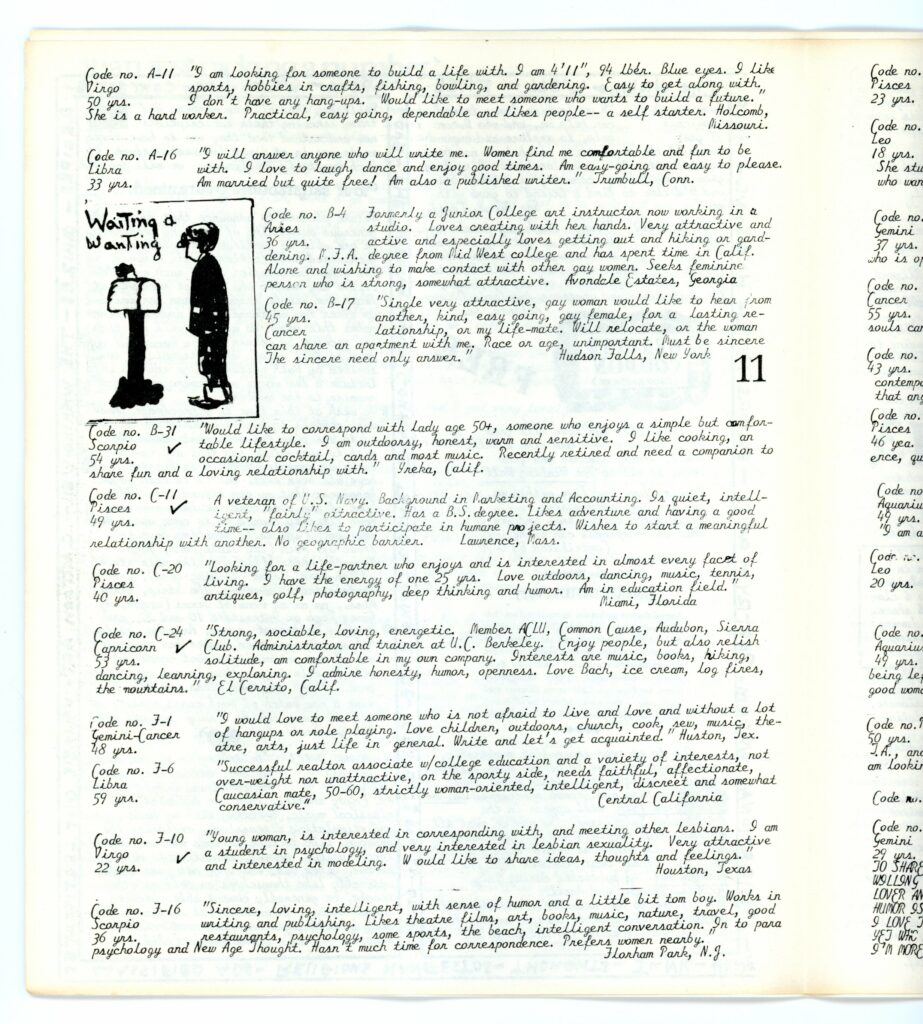 Code no. A-11 "I am looking for someone to build a life with. I am 4'11", 94 lber. Blue eyes. I like
Virgo sports, hobbies in crafts, fishing, bowling, and gardening. Easy to get along with,
50 yrs. I don't have any hang-ups. Would like to meet someone who wants to build a future."
She is a hard worker. Practical, easy going, dependable and likes people-- a self starter. Holcomb,
Missouri.
Code no. A-16 "I will answer anyone who will write me. Women find me comfortable and fun to be
Libra with. I love to laugh, dance and enjoy good times. Am easy-going and easy to please.
33 yrs. Am married but quite free! Am also a published writer." Trumbull, Conn.
Waiting a
Wanting
Code no. B-4 Formerly a Junior College art instructor now working in a
Aries studio. Loves creating with her hands. Very attractive and
36 yrs. active and especially loves getting out and hiking or gard-
dening. M.F.A. degree from Mid West college and has spent time in Calif.
Alone and wishing to make contact with other gay women. Seeks feminine
person who is strong, somewhat attractive. Avondale Estates, Georgia
Code no. B-17 "Single very attractive, gay woman would like to hear from
45 yrs. another, kind, easy going, gay female, for a lasting re-
Cancer lationship, or my life-mate. Will relocate, or the woman
can share an apartment with me. Race or age, unimportant. Must be sincere
The sincere need only answer." Hudson Falls, New York
11
Code no. B-31 "Would like to correspond with lady age 50+, someone who enjoys a simple but comfor-
Scorpio ✓ table lifestyle. I am outdoorsy, honest, warm and sensitive. I like cooking, an
54 yrs. occasional cocktail, cards and most music. Recently retired and need a companion to
share fun and a loving relationship with." Yreka, Calif.
Code no. C-11 A veteran of U.S. Navy. Background in Marketing and Accounting. Is quiet, intell-
Pisces ✓ igent, "fairly" attractive. Has a B.S. degree. Likes adventure and having a good
49 yrs. time-- also likes to participate in humane projects. Wishes to start a meaningful
relationship with another. No geographic barrier. Lawrence, Mass.
Code no. C-20 "Looking for a life-partner who enjoys and is interested in almost every facet of
Pisces living. I have the energy of one 25 yrs. Love outdoors, dancing, music, tennis,
40 yrs. antiques, golf, photography, deep thinking and humor. Am in education field."
Miami, Florida
Code no. C-24 "Strong, sociable, loving, energetic. Member ACLU, Common Cause, Audubon, Sierra
Capricorn ✓ Club. Administrator and trainer at U.C. Berkeley. Enjoy people, but also relish
53 yrs. solitude, am comfortable in my own company. Interests are music, books, hiking,
dancing, learning, exploring. I admire honesty, humor, openness. Love Bach, ice cream, log fires,
the mountains." El Cerrito, Calif.
Code no. F-1 "I would love to meet someone who is not afraid to live and love and without a lot
Gemini-Cancer of hangups or role playing. Love children, outdoors, church, cook, sew, music, the-
48 yrs. atre, arts, just life in general. Write and let's get acquainted." Huston, Tex.
Code no. F-6 "Successful realtor associate w/college education and a variety of interests, not
Libra over-weight nor unattractive, on the sporty side, needs faithful, affectionate,
59 yrs. Caucasian mate, 50-60, strictly woman-oriented, intelligent, discreet and somewhat
conservative." Central California
Code no. F-10 "Young woman, is interested in corresponding with, and meeting other lesbians. I am
Virgo ✓ a student in psychology, and very interested in lesbian sexuality. Very attractive
22 yrs. and interested in modeling. W ould like to share ideas, thoughts and feelings."
Houston, Texas
Code no. F-16 "Sincere, loving, intelligent, with sense of humor and a little bit tom boy. Works in
Scorpio writing and publishing. Likes theatre films, art, books, music, nature, travel, good
36 yrs. restaurants, psychology, some sports, the beach, intelligent conversation. In to para
psychology and New Age Thought. Hasn't much time for correspondence. Prefers women nearby."
Florham Park, N.J.
Code no.
Pisces
23 yrs.
Code no.
Leo
18 yrs.
She stu
who wo
Code no.
Gemini
37 yrs.
who is op
Code no.
Cancer
55 yrs.
souls can
Code no.
43 yrs.
contempo
that ang
Code no.
Pisces
46 yea.
ence, qu
Code no
Aquariu
49 yrs.
"I am a
Code no.
Leo
20 yrs.
Code no.
Aquariu
49 yrs.
being le
good wom
Code no.
50 yrs.
am lookin
Code no.
Code no.
Gemini
29 yrs.
TO SHARE
WILLING
LOVER AN
HUMOR IS
I LOVE T
YET WAS
I'M MORE